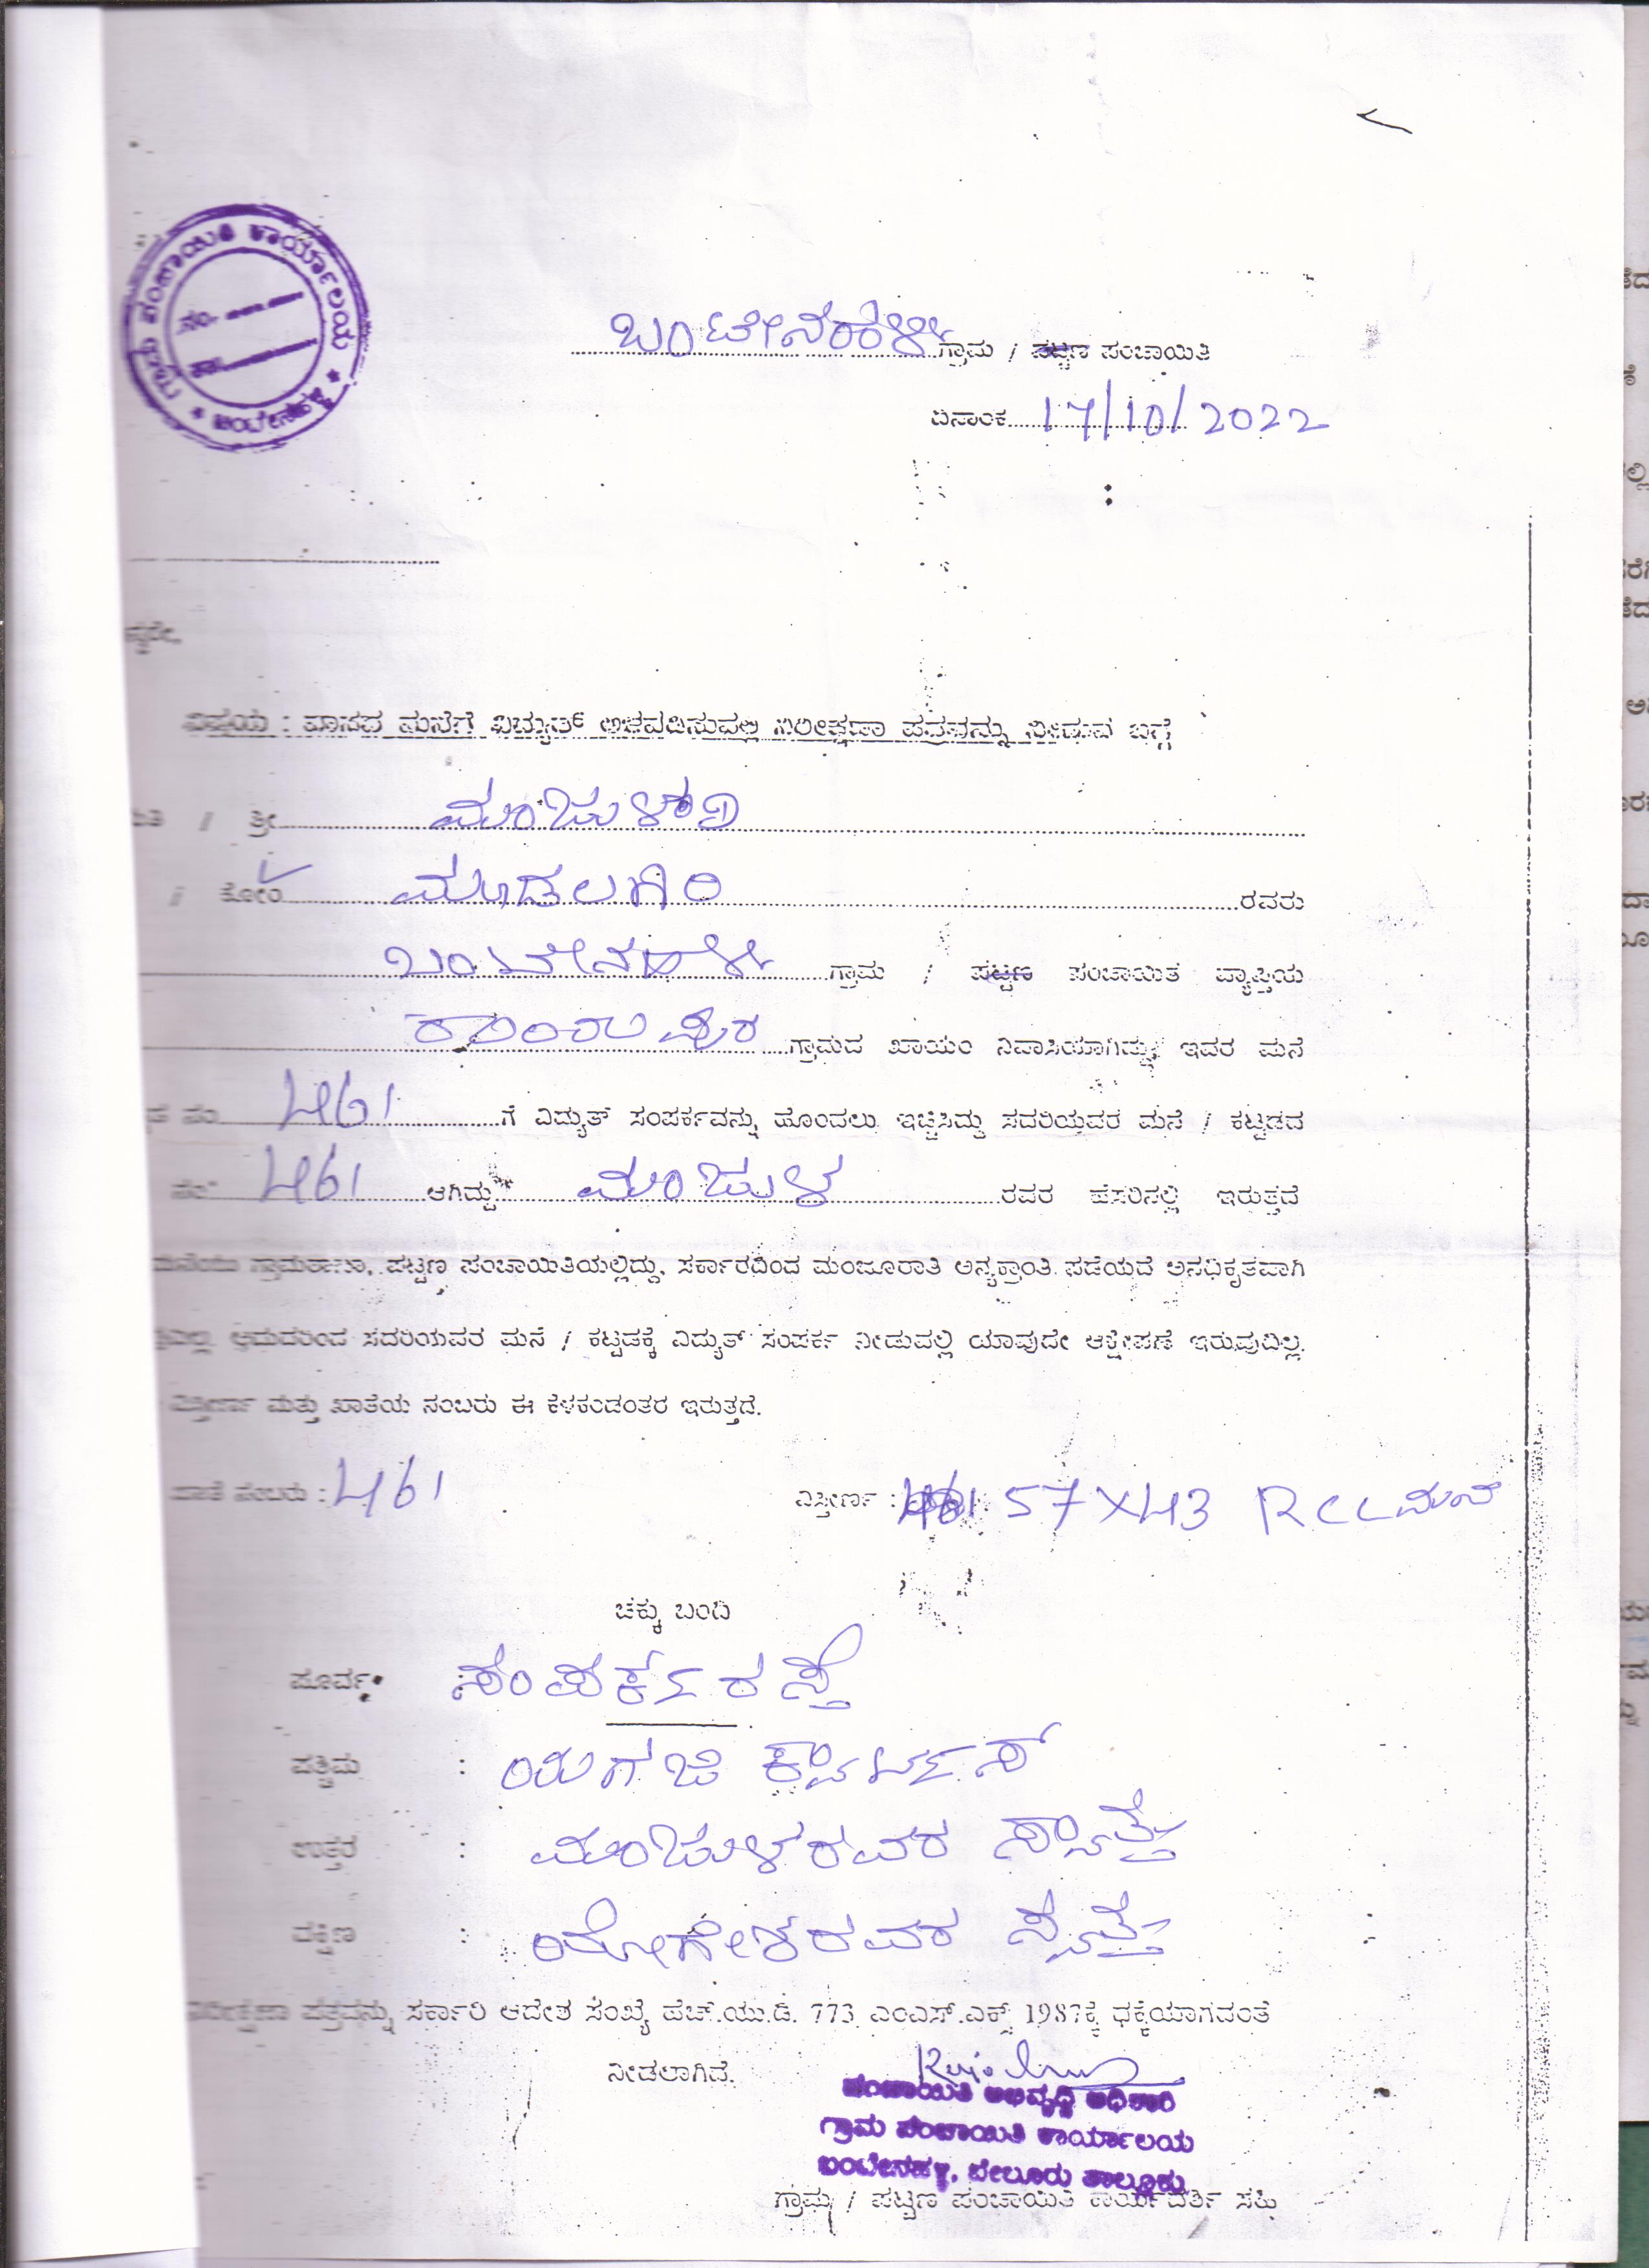 ಗ್ರಾಮ ಪಂಚಾಯಿತಿ ಕಾರ್ಯಾಲಯ
ನಂ.
★ ಬಂಟೇನಹಳ್ಳಿ ★
ಬಂಟೇನಹಳ್ಳಿ ಗ್ರಾಮ / ಪಟ್ಟಣ ಪಂಚಾಯಿತಿ
ದಿನಾಂಕ 17/10/2022
ವಿಷಯ : ವಾಸದ ಮನೆಗೆ ವಿದ್ಯುತ್ ಅಳವಡಿಸುವಲ್ಲಿ ನಿರೀಕ್ಷಣಾ ಪತ್ರವನ್ನು ನೀಡುವ ಬಗ್ಗೆ
/ ಶ್ರೀ ಮಂಜುಳ
/ ಕೋಂ ಮೂಡಲಗಿರಿ ರವರು
ಬಂಟೇನಹಳ್ಳಿ ಗ್ರಾಮ / ಪಟ್ಟಣ ಪಂಚಾಯಿತ ವ್ಯಾಪ್ತಿಯ
ಗ್ರಾಮದ ಖಾಯಂ ನಿವಾಸಿಯಾಗಿದ್ದು, ಇವರ ಮನೆ
ನಂ 461 ಗೆ ವಿದ್ಯುತ್ ಸಂಪರ್ಕವನ್ನು ಹೊಂದಲು ಇಚ್ಚಿಸಿದ್ದು ಸದರಿಯವರ ಮನೆ / ಕಟ್ಟಡದ
ನಂ 461 ಆಗಿದ್ದು ಮಂಜುಳ ರವರ ಹೆಸರಿನಲ್ಲಿ ಇರುತ್ತದೆ
ಮನೆಯು ಗ್ರಾಮಠಾಣಾ, ಪಟ್ಟಣ ಪಂಚಾಯಿತಿಯಲ್ಲಿದ್ದು, ಸರ್ಕಾರದಿಂದ ಮಂಜೂರಾತಿ ಅನ್ಯಕ್ರಾಂತಿ ಪಡೆಯದೆ ಅನಧಿಕೃತವಾಗಿ
ಆದುದರಿಂದ ಸದರಿಯವರ ಮನೆ / ಕಟ್ಟಡಕ್ಕೆ ವಿದ್ಯುತ್ ಸಂಪರ್ಕ ನೀಡುವಲ್ಲಿ ಯಾವುದೇ ಆಕ್ಷೇಪಣೆ ಇರುವುದಿಲ್ಲ.
ವಿಸ್ತೀರ್ಣ ಮತ್ತು ಖಾತೆಯ ನಂಬರು ಈ ಕೆಳಕಂಡಂತರ ಇರುತ್ತದೆ.
ಖಾತೆ ನಂಬರು : 461 ವಿಸ್ತೀರ್ಣ : 57X43 RCC ಮನೆ
ಚಕ್ಕು ಬಂದಿ
ಪೂರ್ವ : ಸಂಪರ್ಕ ರಸ್ತೆ
ಪಶ್ಚಿಮ : ಯಗಚಿ ಕ್ವಾರ್ಟರ್ಸ್
ಉತ್ತರ : ಮಂಜುಳರವರ ಸ್ವತ್ತು
ದಕ್ಷಿಣ : ಯೋಗೇಶರವರ ಸ್ವತ್ತು
ನಿರೀಕ್ಷಣಾ ಪತ್ರವನ್ನು ಸರ್ಕಾರಿ ಆದೇಶ ಸಂಖ್ಯೆ ಹೆಚ್.ಯು.ಡಿ. 773 ಎಂಎಸ್.ಎಕ್ಸ್ 1987ಕ್ಕೆ ಧಕ್ಕೆಯಾಗದಂತೆ
ನೀಡಲಾಗಿದೆ.
ಪಂಚಾಯಿತಿ ಅಭಿವೃದ್ಧಿ ಅಧಿಕಾರಿ
ಗ್ರಾಮ ಪಂಚಾಯಿತಿ ಕಾರ್ಯಾಲಯ
ಬಂಟೇನಹಳ್ಳಿ, ಬೇಲೂರು ತಾಲ್ಲೂಕು
ಗ್ರಾಮ / ಪಟ್ಟಣ ಪಂಚಾಯಿತಿ ಕಾರ್ಯದರ್ಶಿ ಸಹಿ